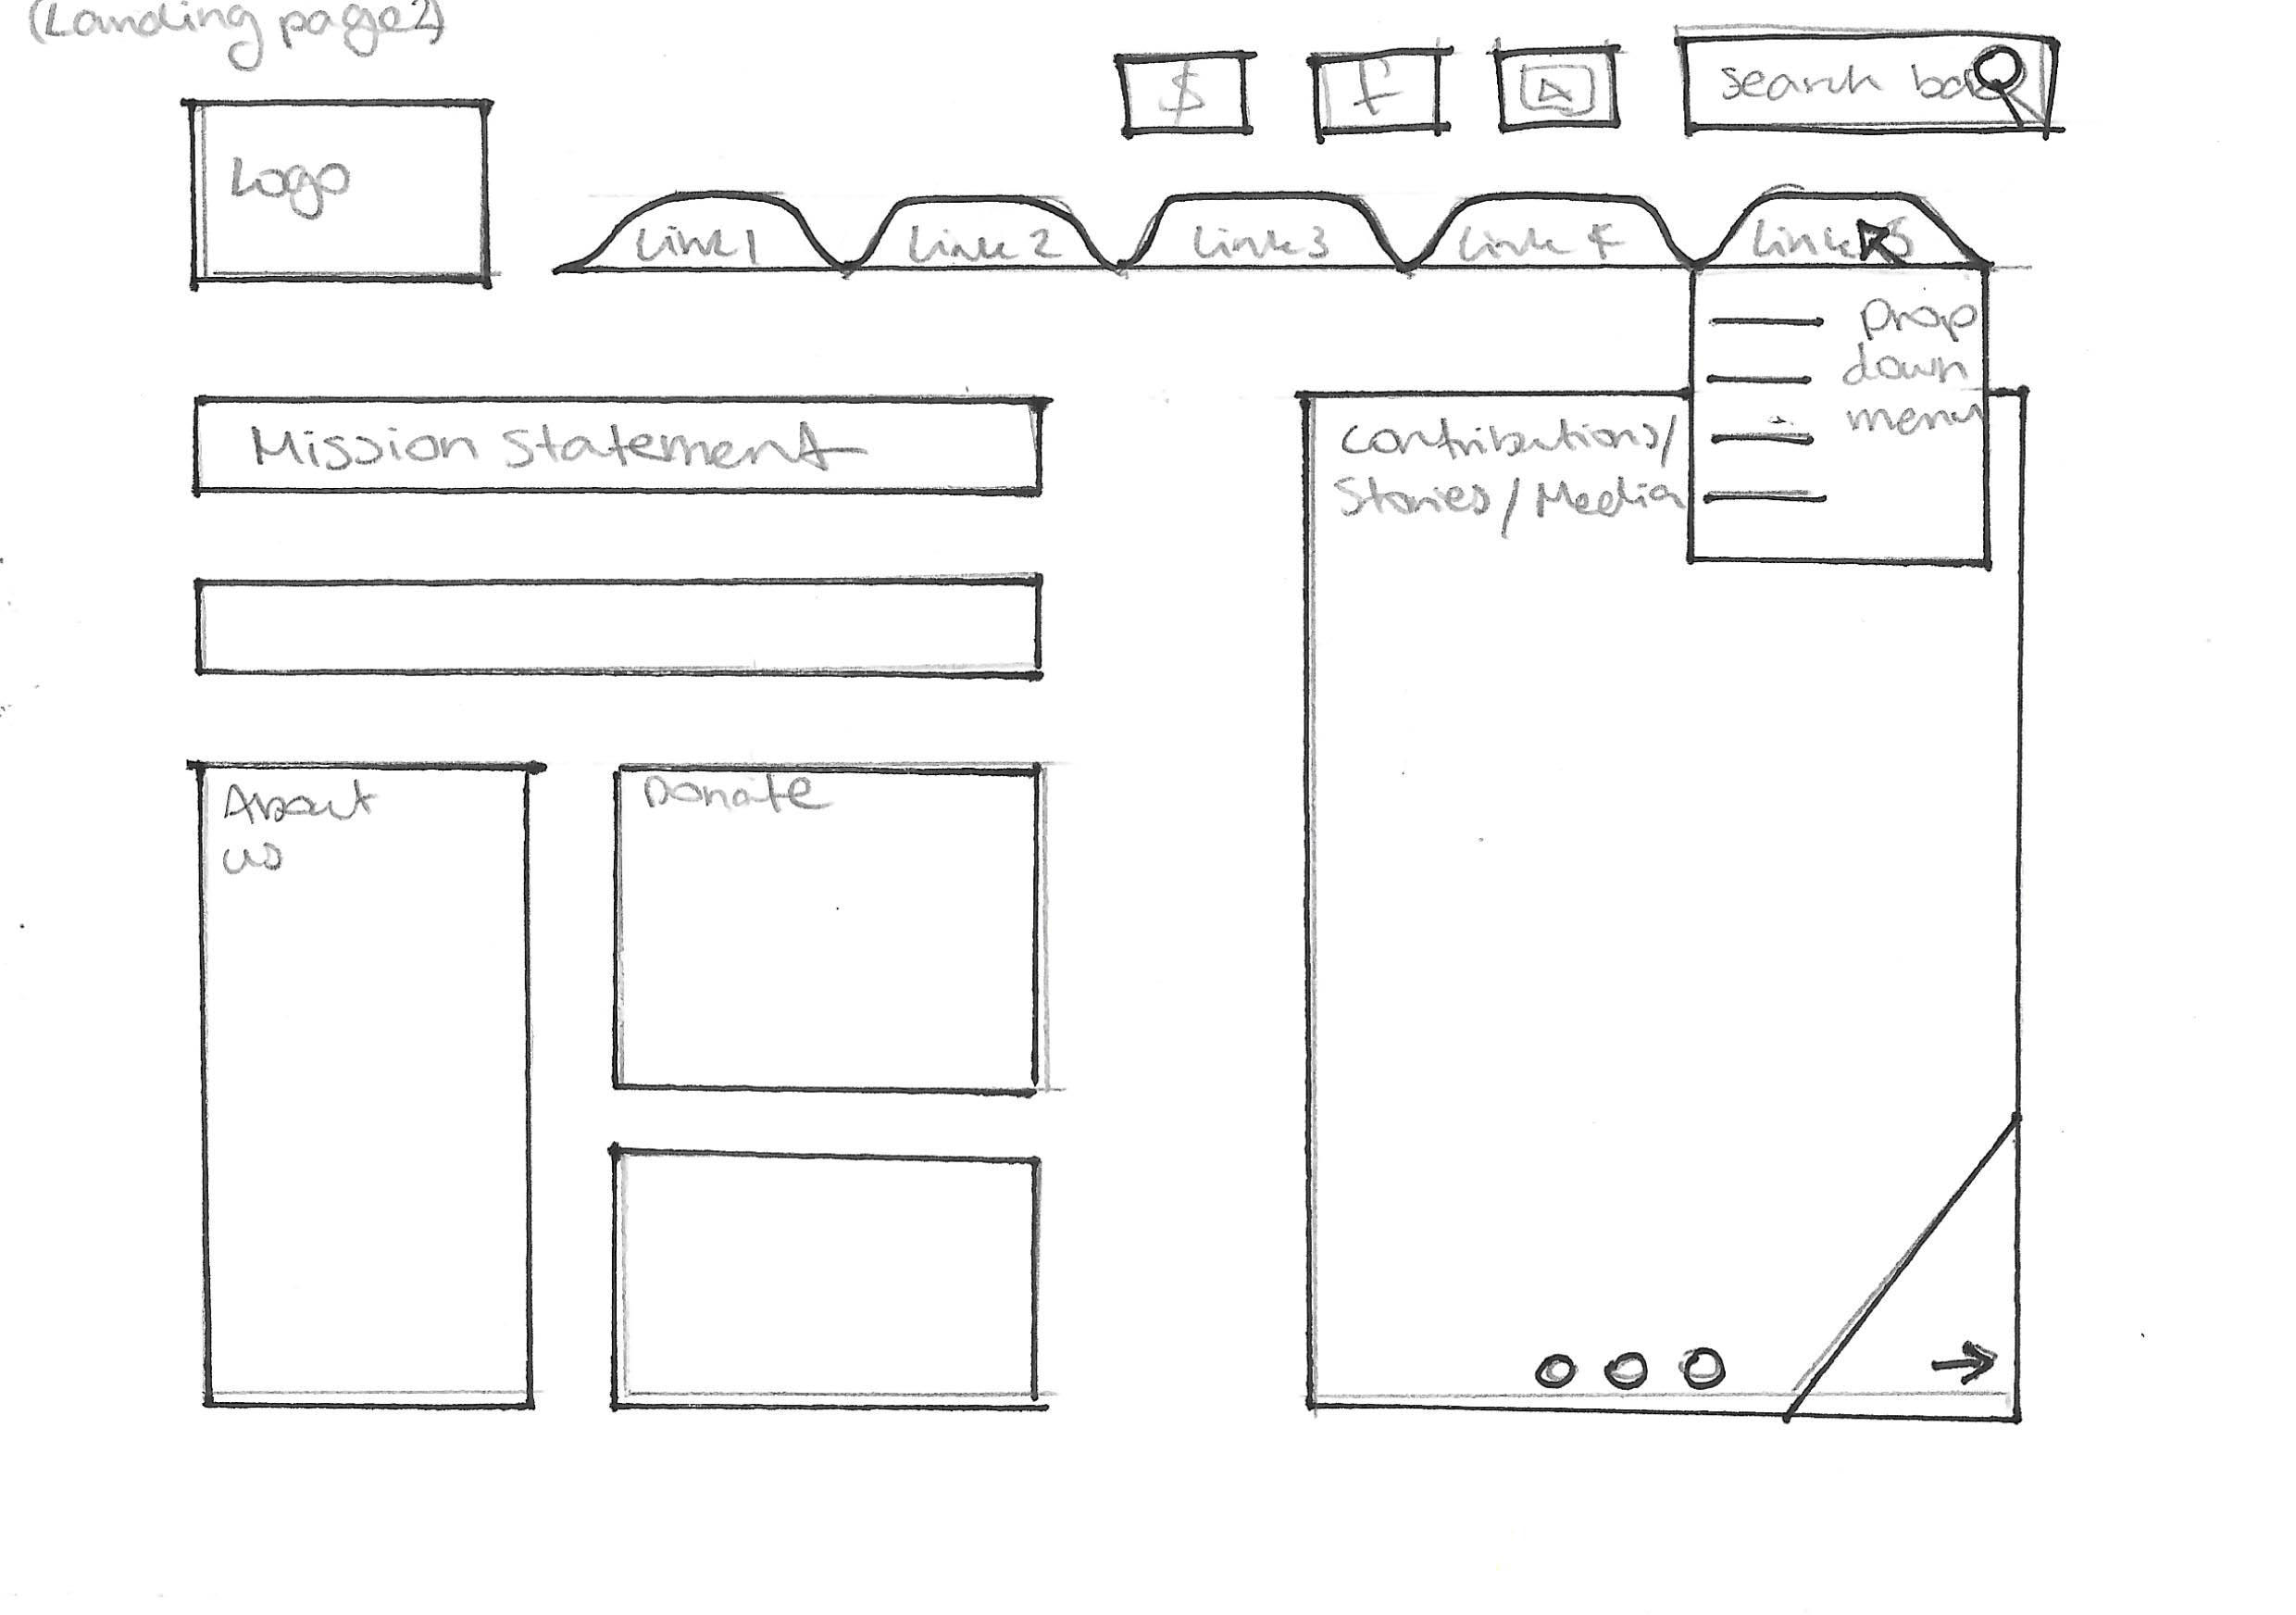 (Landing page2)
$ f
Search bar
Logo
Link 1 Link 2 Link 3 Link 4 Link 5
Drop
down
menu
Mission Statement
Contributions/
Stories / Media
About
us
Donate